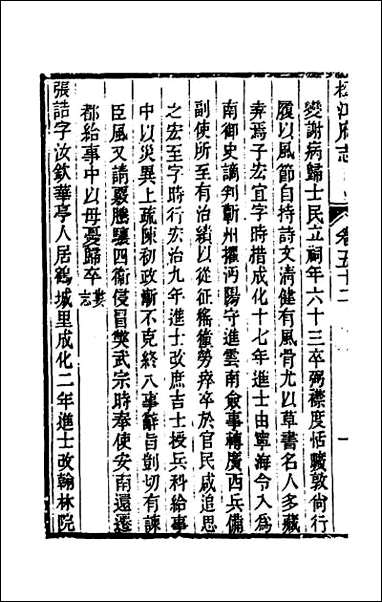 松江府志
卷五十二
變謝病歸士民立祠年六十三卒弼襟度恬曠敦尙行
履以風節自持詩文淸健有風骨尤以草書名人多藏
弆焉子宏宜字時措成化十七年進士由寧海令入爲
南御史謫判靳州擢沔陽守進雲南僉事轉廣西兵備
副使所至有治績以從征徭獞勞瘁卒於官民咸追思
之宏至字時行宏治九年進士改庶吉士授兵科給事
中以災異上疏陳初政漸不克終八事辭旨剴切有諫
臣風又請覈騰驤四衛侵冒獘武宗時奉使安南還遷
都給事中以母憂歸卒婁志
張誥字汝欽華亭人居鶴城里成化二年進士改翰林院